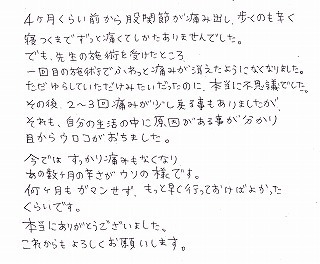 4ヶ月くらい前から股関節が痛み出し、歩くのも辛く
寝つくまでずっと痛くてしかたありませんでした。
でも、先生の施術を受けたところ
一回目の施術でふわっと痛みが消えたようになくなりました。
ただゆらしていただけみたいだったのに、本当に不思議でした。
その後、2〜3回痛みが少し戻る事もありましたが、
それも、自分の生活の中に原因がある事が分かり
目からウロコがおちました。
今では すっかり痛みもなくなり
あの数ヶ月の辛さが ウソの様です。
何ヶ月も ガマンせず、もっと早く行っておけばよかった
くらいです。
本当にありがとうございました。
これからも よろしくお願いします。